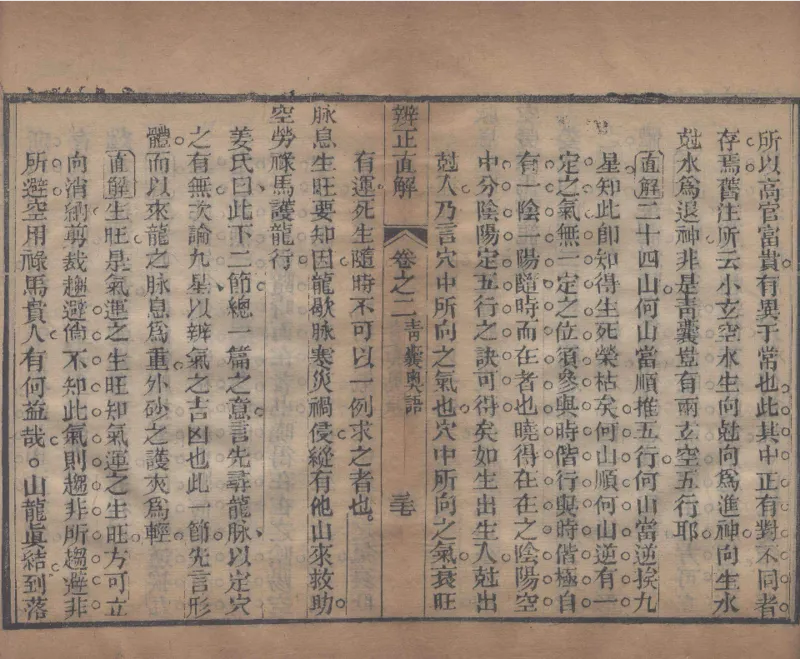 所以高官富貴有異于常也此其中正有對不同者
存焉舊注所云小玄空水生向尅向爲進神向生水
尅水爲退神非是靑囊豈有兩玄空五行耶
直解二十四山何山當順推五行何山當逆挨九
星知此卽知得生死榮枯矣何山順何山逆有一
定之氣無一定之位須參與時偕行與時偕極自
有一陰一陽隨時而在者也曉得在在之陰陽空
中分陰陽定五行之訣可得矣如生出生入尅出
尅入乃言穴中所向之氣也穴中所向之氣衰旺
辨正直解 卷之二 靑囊奧語
有運死生隨時不可以一例求之者也
脉息生旺要知因龍歇脉寒災禍侵縱有他山來救助
空勞祿馬護龍行
姜氏曰此下二節總一篇之意言先尋龍脉以定穴
之有無次論九星以辨氣之吉凶也此一節先言形
體而以來龍之脉息爲重外砂之護夾爲輕
直解生旺是氣運之生旺知氣運之生旺方可立
向消納剪裁趨避倘不知此氣則趨非所趨避非
所避空用祿馬貴人有何益哉。山龍眞結到落